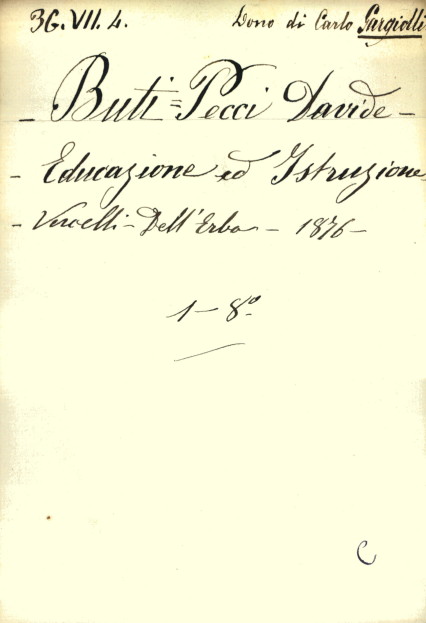 36.VII.4. Dono di Carlo Gargiolli
- Buti=Pecci Davide -
- Educazione ed Istruzione
- Vercelli - Dell'Erba - 1876 -
1 - 8º
C